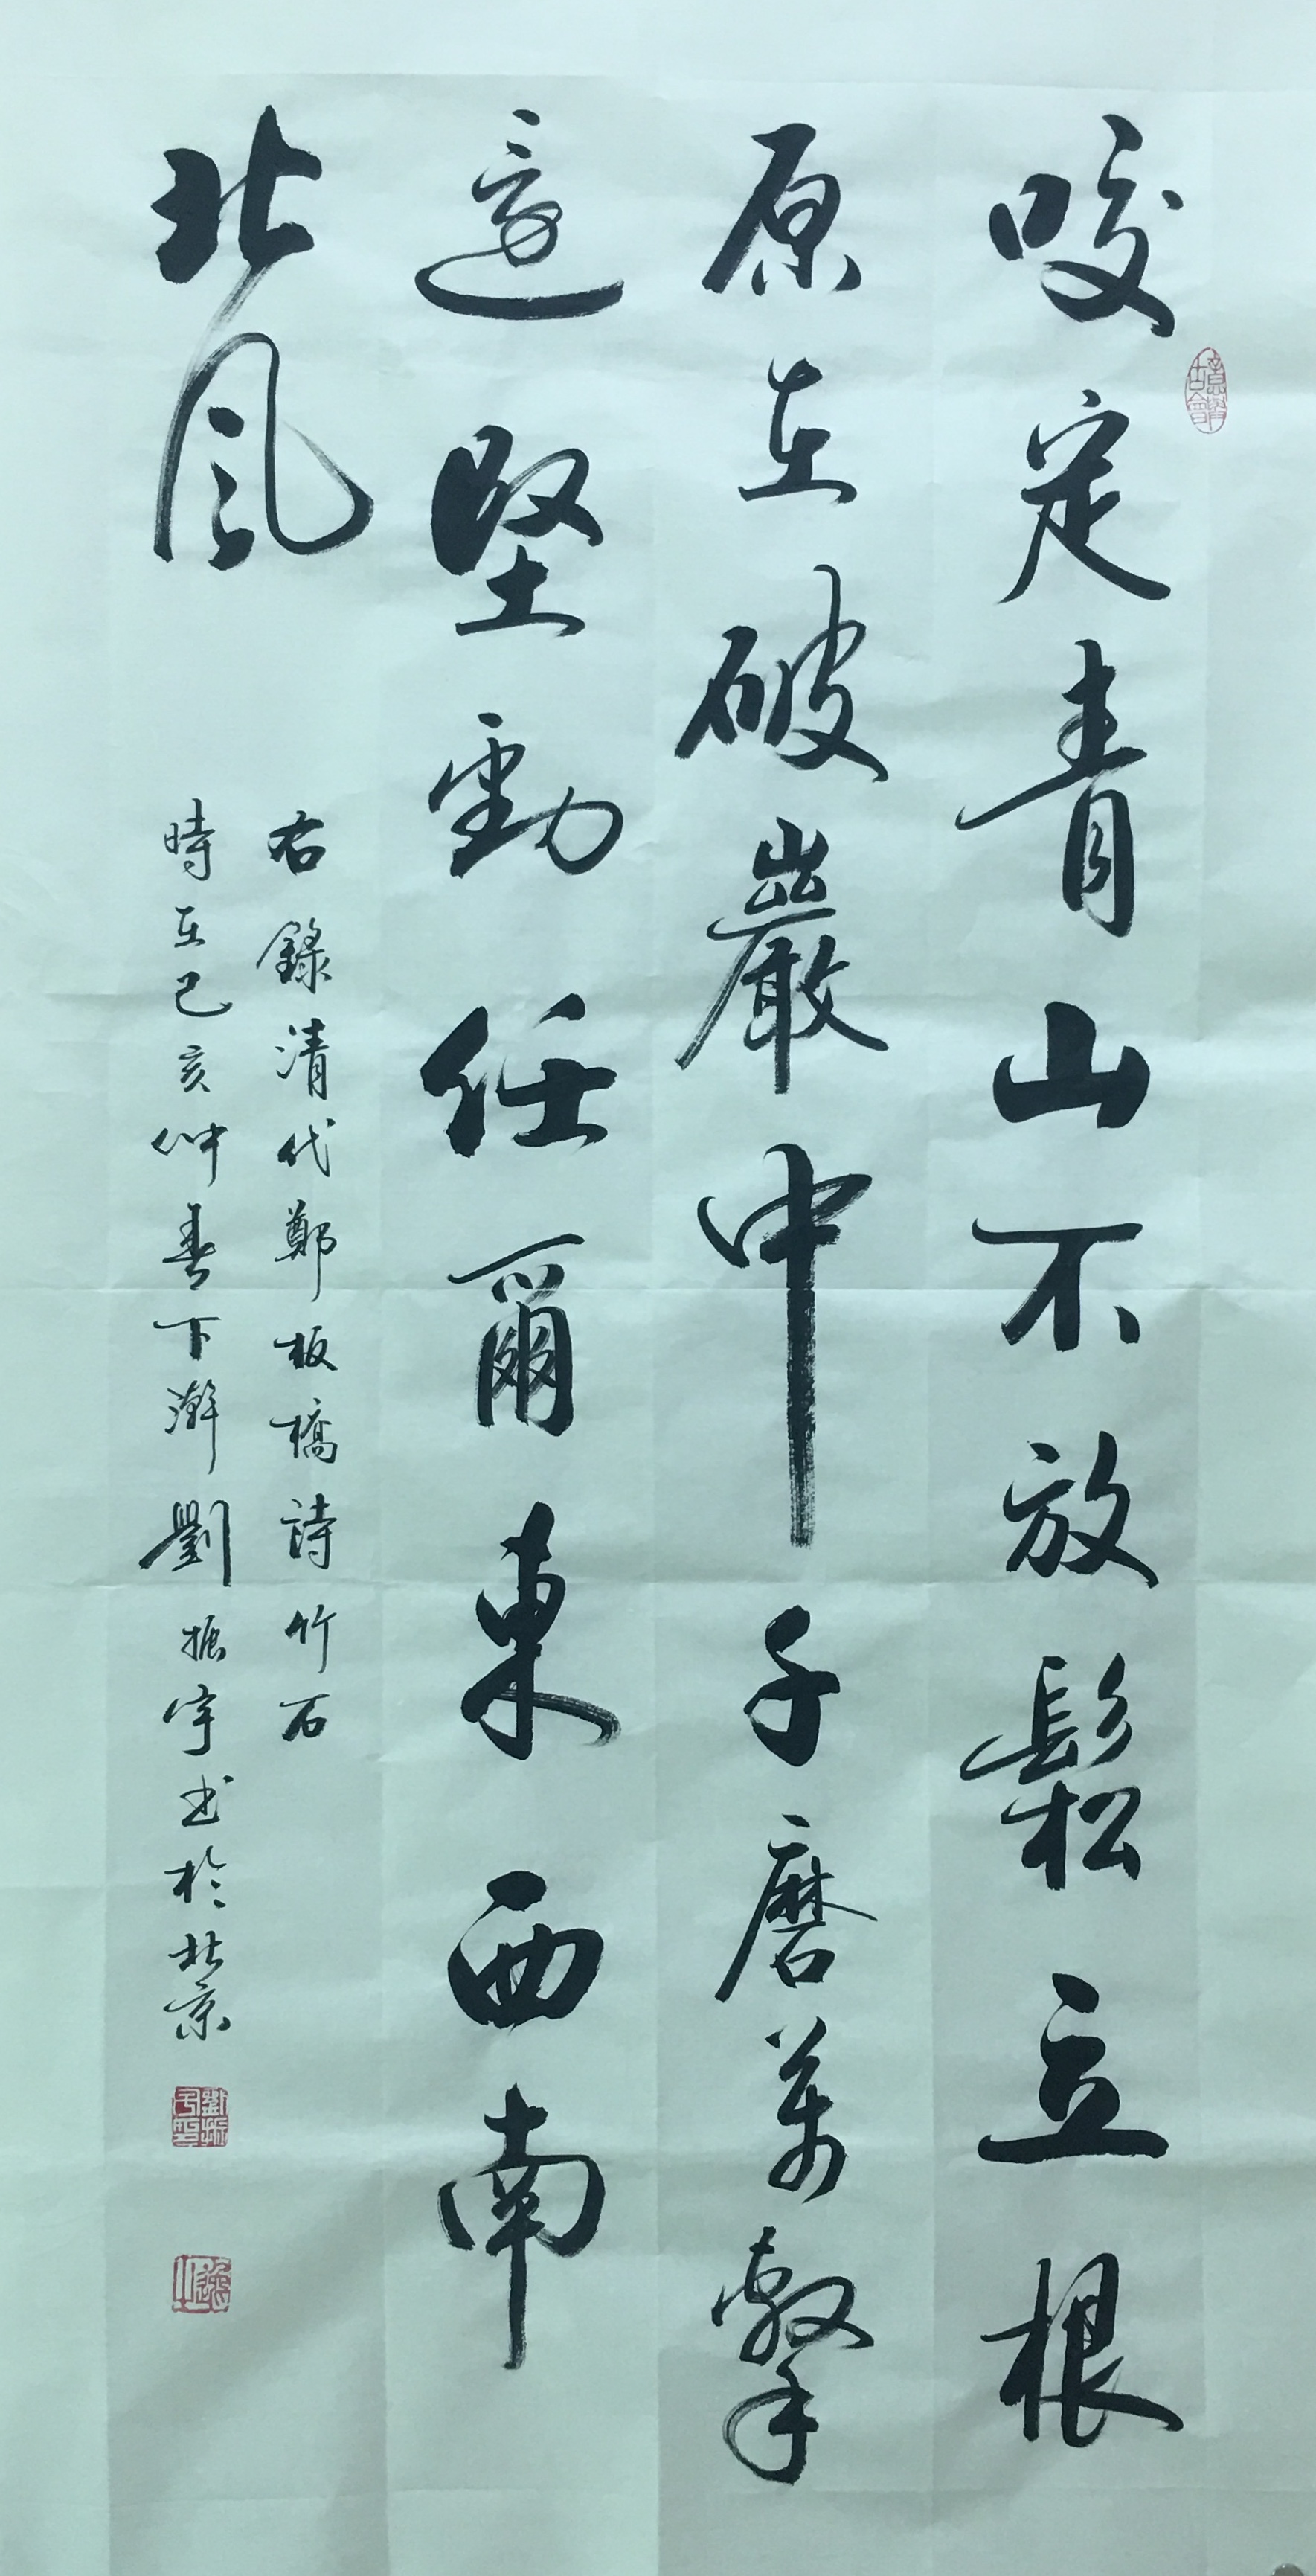 咬定青山不放鬆立根
原在破巖中千磨萬擊
還堅勁任爾東西南
北風
右錄清代鄭板橋詩竹石
時在己亥仲春下澣劉振宇书於北京
意與古會
劉振宇印